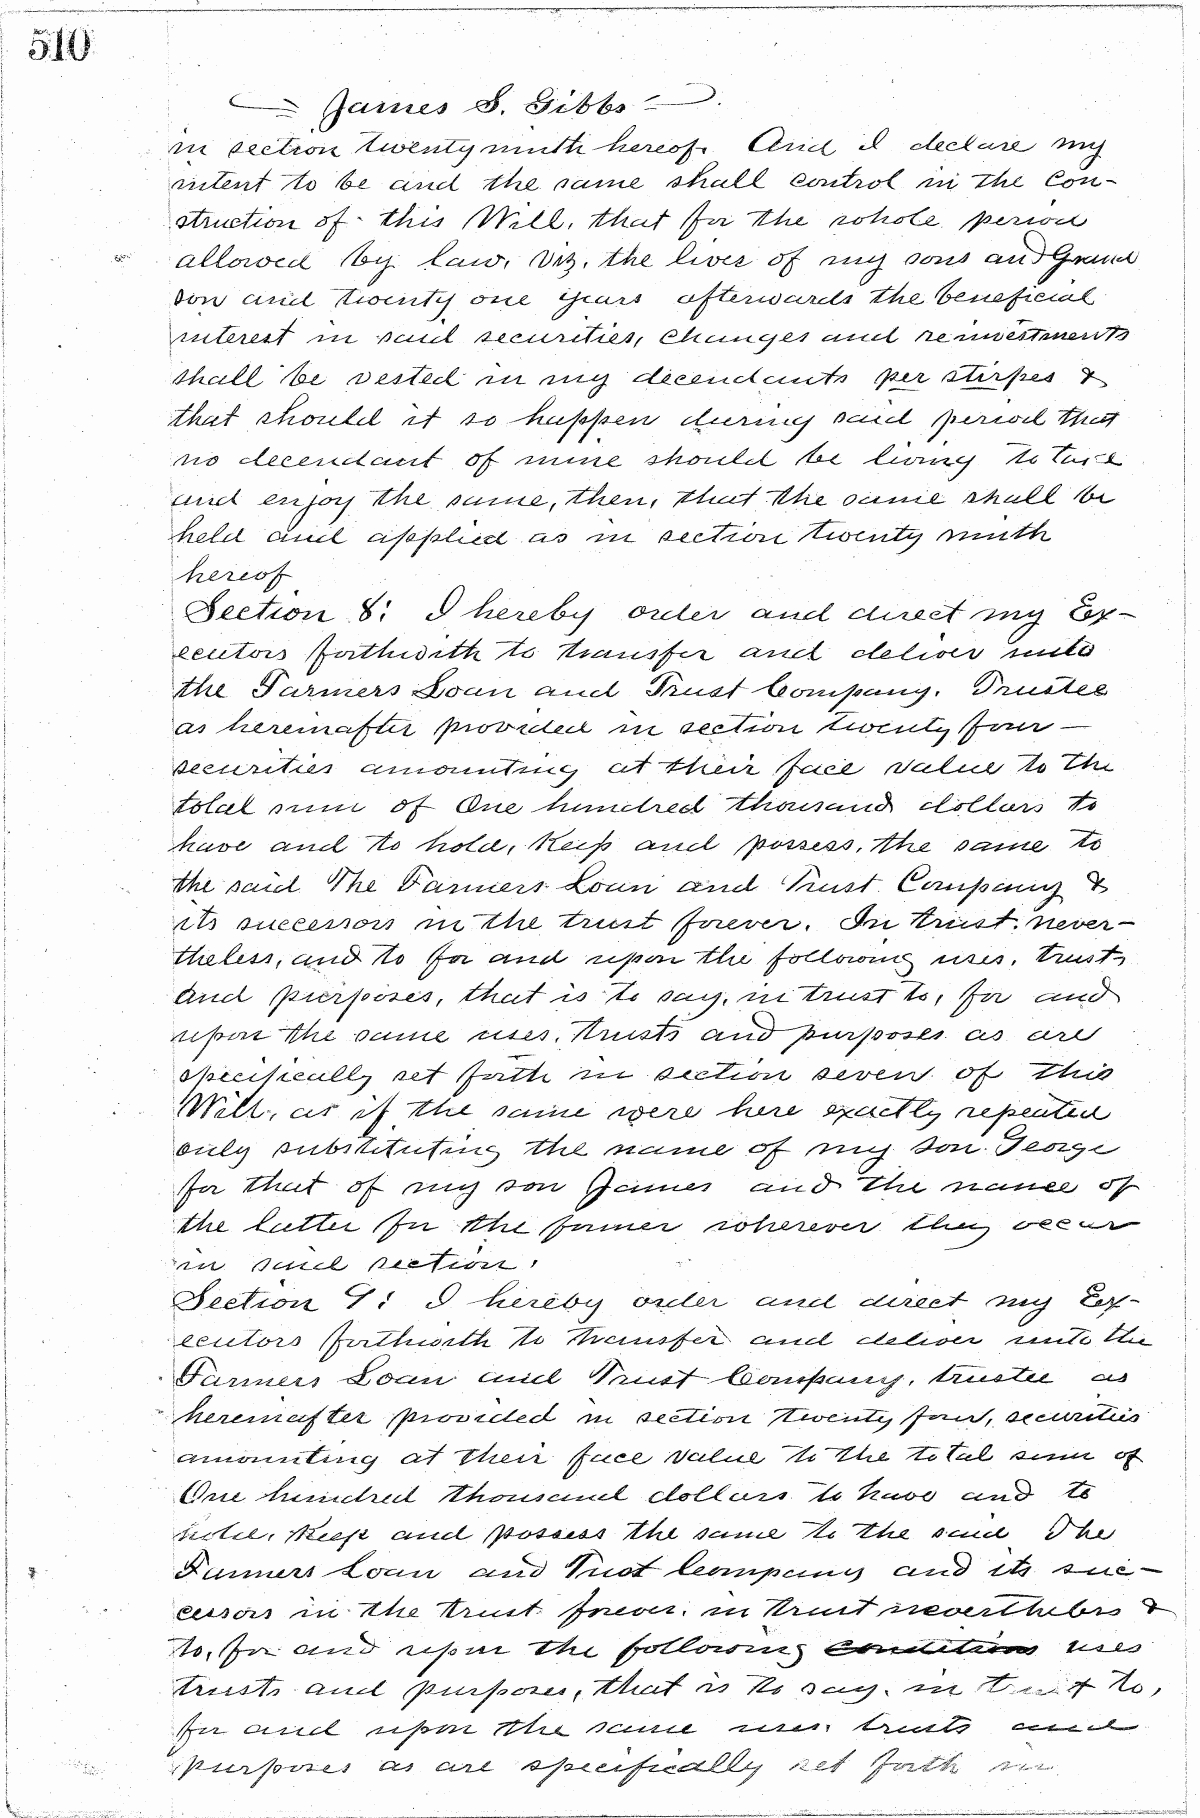 510
James S. Gibbs
in section twenty ninth hereof. And I declare my
intent to be and the same shall control in the con-
struction of this Will, that for the whole period
allowed by law, viz. the lives of my sons and Grand
son and twenty one years afterwards the beneficial
interest in said securities, changes and reinvestments
shall be vested in my decendants per stirpes &
that should it so happen during said period that
no decendant of mine should be living to take
and enjoy the same, then, that the same shall be
held and applied as in section twenty ninth
hereof
Section 8: I hereby order and direct my Ex-
ecutors forthwith to transfer and deliver unto
the Farmers Loan and Trust Company. Trustee
as hereinafter provided in section twenty four —
securities amounting at their face value to the
total sum of One hundred thousand dollars to
have and to hold, keep and possess, the same to
the said The Farmers Loan and Trust Company &
its successors in the trust forever. In trust, never-
theless, and to for and upon the following uses, trusts
and purposes, that is to say, in trust to, for and
upon the same uses, trusts and purposes as are
specifically set forth in section seven of this
Will, as if the same were here exactly repeated
only substituting the name of my son George
for that of my son James and the name of
the latter for the former wherever they occur
in said section.
Section 9: I hereby order and direct my Ex-
ecutors forthwith to transfer and deliver unto the
Farmers Loan and Trust Company, trustee as
hereinafter provided in section twenty four, securities
amounting at their face value to the total sum of
One hundred thousand dollars to have and to
hold, keep and possess the same to the said The
Farmers Loan and Trust Company and its suc-
cessors in the trust forever. in trust nevertheless &
to, for and upon the following conditions uses
trusts and purposes, that is to say. in trust to,
for and upon the same uses. trusts and
purposes as are specifically set forth in